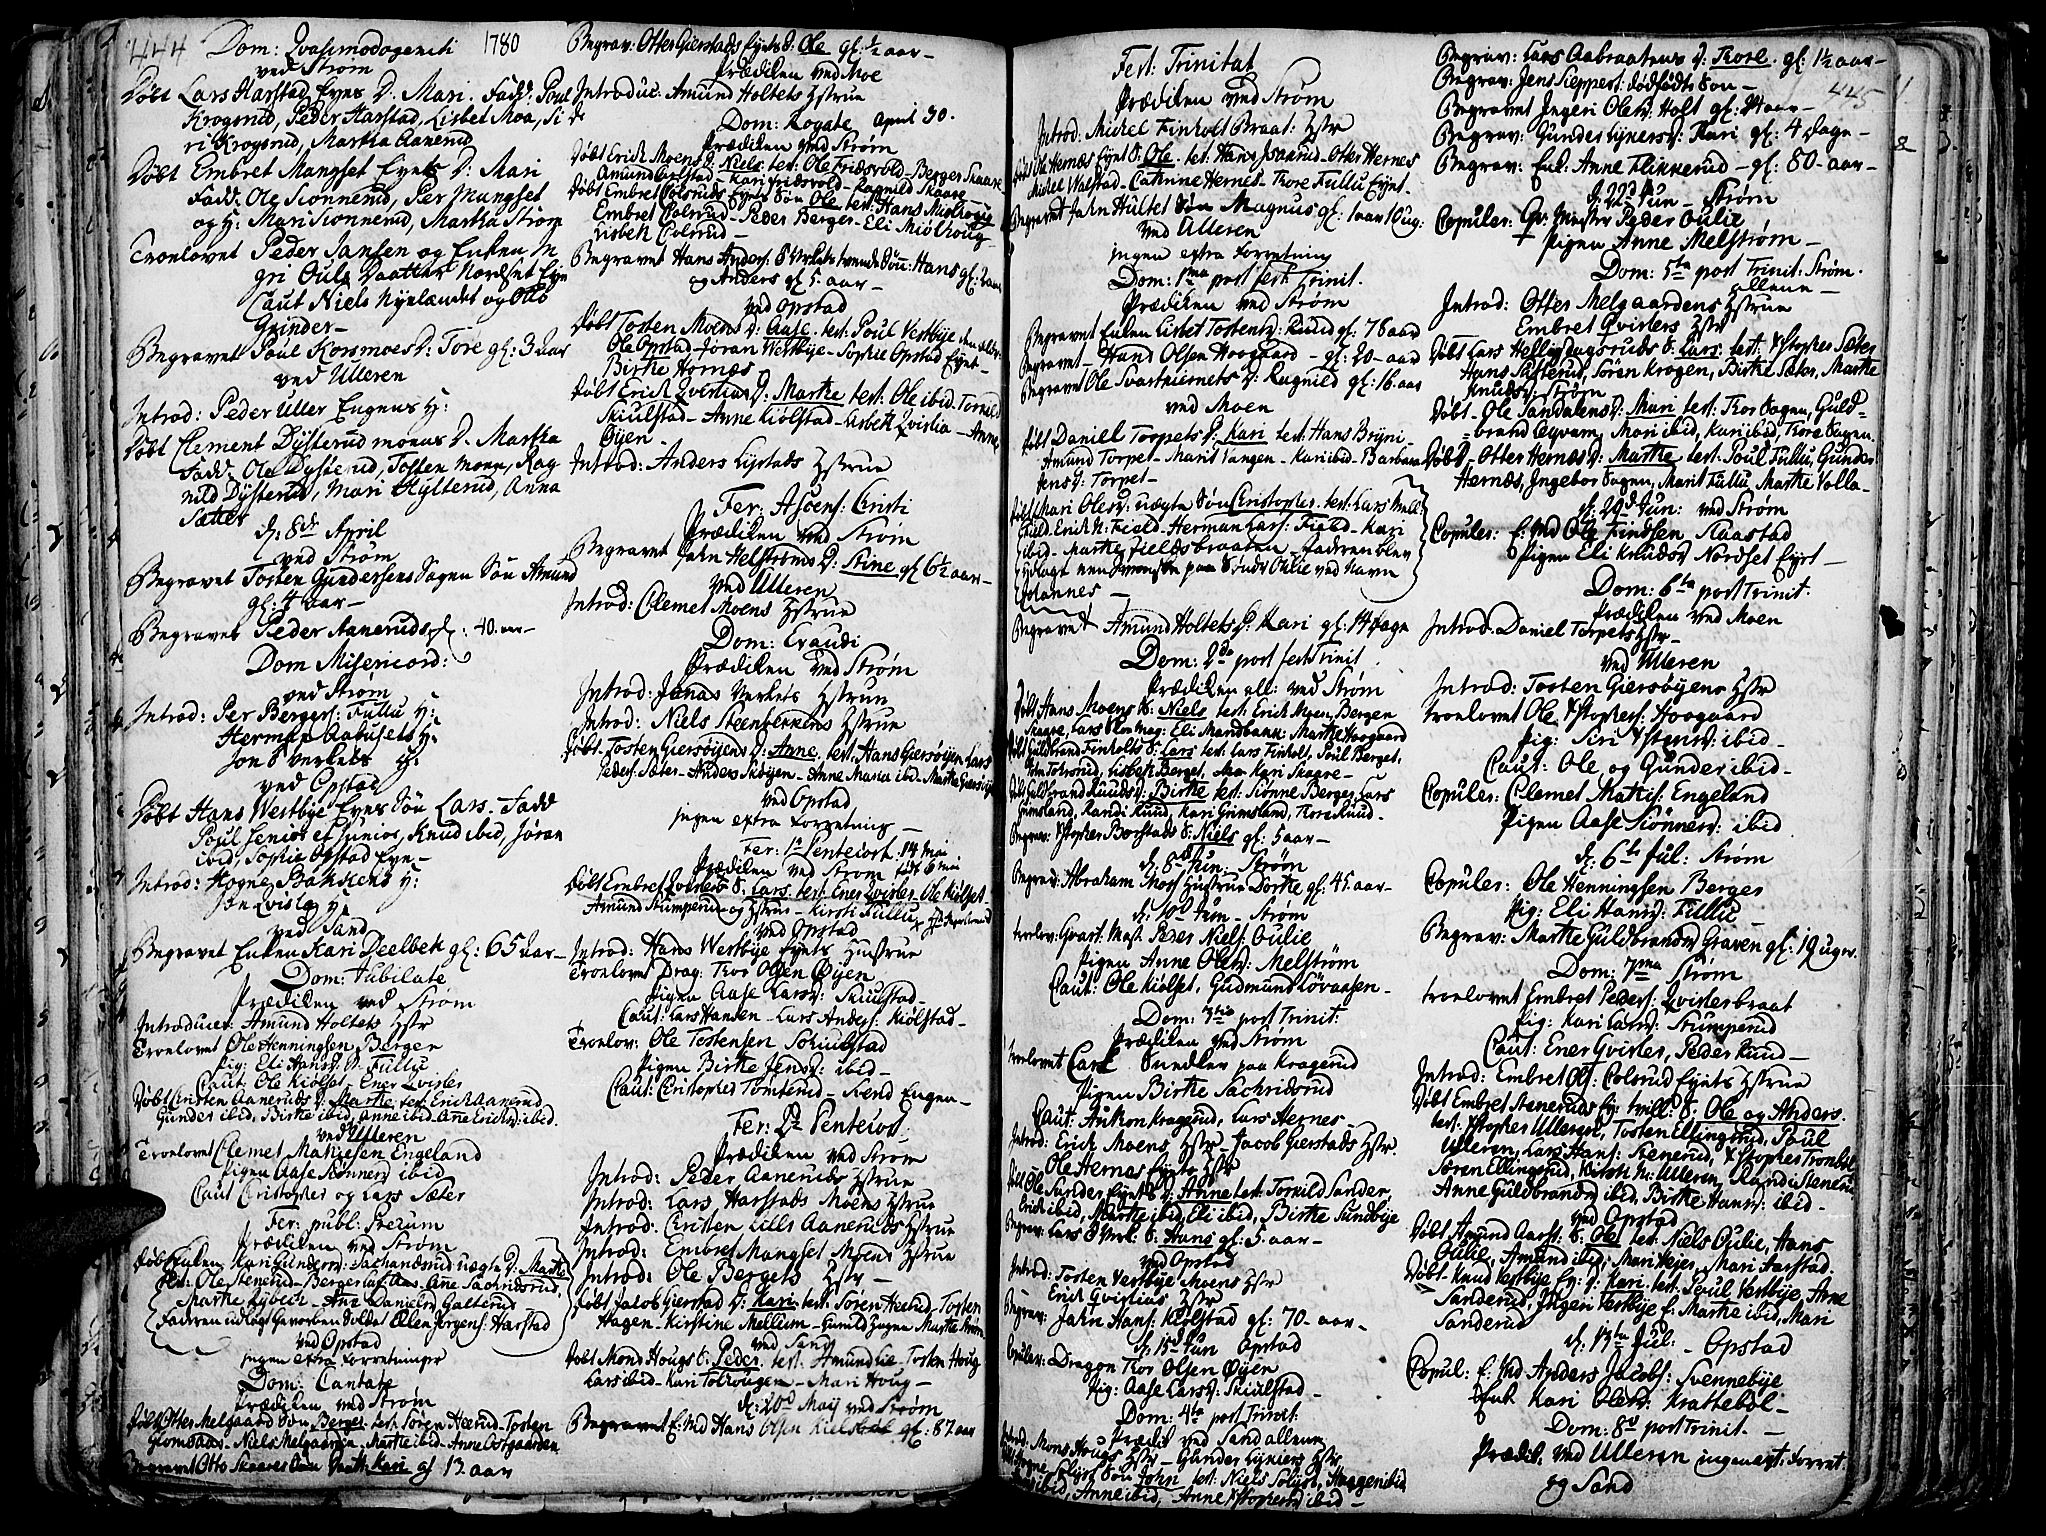 444 Dom: Qvasimodogeniti 1780
ved Strøm
Døbt Lars Harstad Eyes D. Mari. Fadd: Poul
Krogsrud, Peder Harstad, Lisbet Moa, Si
ri Krogsrud, Martha Aanerud
Døbt Embret Mangset Eyets D. Mari
Fadd: Ole Skonnerud, Per Mangset
og H: Mari Skonnerud, Martha Strøm
Troelovet Peder Jansen og Enken M
gri Ouls Daatter Nordset Eye
Caut Niels Nyelændet og Otto
Grinder
Begravet Poul Korsmoes D: Tore gl: 3 aar
ved Ulleren
Introd: Peder Uller Engens H:
Døbt Clement Dysterud moens D. Martha
Fadd: Ole Dysterud, Tosten Moen, Rag
nild Dysterud, Mari Hylterud, Anna
Sætter
d: 8de April
ved Strøm
Begravet Tosten Gundersens Sagen Søn Amund
gl: 4 aar
Begravet Peder Aanerud gl: 40 aar
Dom Misericord:
ved Strøm
Introd: Per Bergers: Fullu H:
Herman Aabuset H:
Jon Sverkels H:
ved Opstad
Døbt Hans Westbye Eyes Søn Lars. Fadd
Poul Senior et Junior, Knud ibid, Jøran
ibid, Sophie Opstad Eye
Introd: Hogne Bakkens H:
Jon Qvisla H:
ved Sand
Begravet Enken Kari Deelbek gl: 65 aar
Dom: Jubilate
Prædiken ved Strøm
Introducer: Amund Holtets Hstr
Troelovet Ole Henningsen Berger
Pig: Eli Hansd: Fullu
Caut Ole Kiølset, Ener Qvisler
Døbt Christen Aaneruds D: Marthe test. Erich Aanerud
Gunder ibid, Birthe ibid, Anne ibid, Ane Erichs: ibid.
ved Ulleren
Troelovet Clemet Mathisen Engeland
Pigen Aase Skonnerd ibid
Caut Christopher og Lars Sæter
Fer: publ: Precum
Prædiken ved Strøm
Døbt Enken Kari Gundersd: Sachanderud uægte D. Marthe
test: Ole Stenerud, Berger, Ane Sachrisrud,
Marthe Nybeck, Ane Danielsd Galterud
Faderen udlagt Gevorben Soldat Ellen Jørgens: Harstad
ved Opstad
ingen extra Forretninger
Dom: Cantate
Prædiken ved Strøm
Døbt Otter Melgaard Søn Berger. test. Søren Heerud, Tosten
Glomsaas, Niels Melgaarden, Marthe ibid, Anne Ostgaarden
Begravet Otto Skaares Daatt: Kari gl 13 aar
Begrav: Otter Gierstads Eyets S. Ole gl: ½ aar
Prædiken ved Moe
Introduc: Amund Holtets Hstrue
Dom: Rogate april 30.
Prædiken ved Strøm
Døbt Erich Moens S. Niels test: Ole Fridsvold, Berger Skaare
Amund Galstad, Kari Fridsvold, Ragnild Skaare
Døbt Embret Colsruds Eyets Søn Ole test: Hans Miølhoug
Embret Colsrud, Peder Berger, Eli Miølhoug
Lisbeth Colsrud
Begravet Hans Anders: tvende Søn: Hans gl: 2 aar
og Anders gl 5 aar
ved Opstad
Døbt Tosten Moens D: Aase. test: Poul Vestbye den eldre
Ole Opstad, Jøran Westbye, Sophie Opstad Eyet
Birthe Hornæs
Døbt Erich Qverlius D: Marthe test: Ole ibid, Tornild
Skiulstad, Anne Kiølstad, Lisbeth Qvislia, Anne
Øyen
Introd: Anders Lystads Hstrue
Fer: Ascens: Christi
Prædiken ved Strøm
Begravet John Helstroms D: Stine gl 6½ aar
ved Ulleren
Introd: Clemet Moens Hstrue
Dom: Exaudi
Prædiken ved Strøm
Introd: Jonas Verkets Hstrue
Introd: Niels Steenbekkens Hstrue
Døbt: Tosten Giersøyens D: Anne, test: Hans Giersøyen, Lars
Peders: Sæter, Anders Skøyen, Anne Maria ibid, Marthe Giersøyen
ved Opstad
ingen extra Forretning
Fer: 1a Pentecost. 14 mai
Prædiken ved Strøm født 6 mai
Døbt Embret Qvislers S: Lars. test: Ener Qvisler, Ole Kiølset
Amund Stumperud og Hstrue, Kirsti Fullu
ved Opstad
Introd: Hans Westbye Eyets Hustrue
Troelovet Drag: Thor Olsen Øyen
Pigen Aase Larsd: Skiulstad
Caut: Lars Hansen, Lars Anders: Kiølstad
Troelov: Ole Tostensen Schiulstad
Pigen Birthe Jensd: ibid
Caut: Christopher Tomterud, Svend Engen
Fer: 2da Pentecost
Prædiken ved Strøm
Introd: Peder Aaneruds Hstrue
Introd: Lars, Harstads Moens Hstrue
Introd: Christen Lills Aaneruds Hstrue
Introd: Embret Mangset Moens Hstrue
Introd: Ole Bergets Hstr
Døbt Jacob Gierstad D: Kari. test: Søren Heerud, Tosten
Hagen, Kirstine Mellum, Gunild Hagen, Marthe Strøm
ved Sand
Døbt Mons Hougs S: Peder. test: Amund Lie, Tosten Houg
Lars ibid, Kari Tolvougen, Mari Houg
d: 20d Maij ved Strøm
Begravet E: Md Hans Olsen Kielstad gl: 87 aar
Fest: Trinitat
Prædiken ved Strøm
Introd: Michel Finholt Braat: Hstr
Døbt Ole Hernæs Eyet S. Ole. test: Hans Isaarud, Otter Hernes
Michel Walstad, Cathrine Hernes, Thore Fullu Eyet
Begravet Jahn Hultet Søn Magnus gl: 1 aar 10 ug:
ved Ulleren
ingen extra Forretning
Dom: 1ma post fest Trinit.
Prædiken ved Strøm
Begravet Enken Lisbet Tostensd: Ruud gl: 76 aar
Begravet Hans Olsen Hoogaard gl: 20 aar
Begravet Ole Svartkiernets D: Ragnild gl: 16 aar
ved Moen
Døbt Daniel Torpets D: Kari test: Hans Bryni
Amund Torpet, Marit Vangen, Kari ibid, Barbara
Jensd: Torpet
Døbt Mari Olesd: uægte Søn Christopher. test: Lars Mell:
Field, Erich N: Field, Herman Lars: Field, Kari
ibid, Marthe Fieldsbraaten, Faderen blev
udlagt een Svenske paa Søndr Oulie ved Navn
Johannes
Begravet Amund Holtets D: Kari gl: 14 Dage
Dom: 2do post fest Trinit.
Prædiken all: ved Strøm
Døbt Hans Moens S: Niels test: Erich Moen, Bergen
Skaare, Lars Mag: Eli Mandbank: Marthe Hoogaard
Døbt Guldbrand Finholts S: Lars test: Lars Finholt, Poul Berget,
Tolvsrud, Lisbeth Berget, Kari Skaare
Døbt Guldbrand Ruuds D: Birthe test: Siønne Berger, Lars
Grimsland, Randi Ruud, Kari Grimsland, Thore Ruud
Begrav: Xstopher Borstads S: Niels gl: 5 aar
d: 8d Jun. Strøm
Begrav: Abraham Mors Hustrue Dorthe gl: 45 aar
d: 10d Jun Strøm
Troelov: Qvart: Mast: Peder Niels: Oulie
Pigen Anne Olesd: Melstrøm
Caut: Ole Kiølset, Gudmund Lövaasen
Dom: 3tia post Trinit:
Prædiken ved Strøm
Troelovet Carl Sundler paa Kragerud
Pigen Birthe Sachrisrud
Caut: Anthon Kragerud, Lars Hernes
Introd: Erich Moens Hstr, Jacob Gierstads Hstr
Ole Hernæs Eyets Hstr
Døbt Ole Sander Eyets D: Anne test: Tornild Sander,
Erich ibid, Marthe ibid, Eli ibid, Birthe Sundbye
Begrav: Lars S: Hans gl: 5 aar
ved Opstad
Introd: Tosten Vestbye Moens Hstr
Erich Qvislius Hstr
Begrav: Jahn Hans: Kiølstad gl: 70 aar
d: 15d Jun Opstad
Copuler: Dragon Thor Olsen Øyen
Pig: Aase Larsd: Skiulstad
Dom: 4ta post Trinit:
Prædik: ved Sand allene
Introd: Mons Hougs Hstr, Gunder Lykners Hstr
Solyst Søn John test: Niels Solyst, Haagen ibid
ibid, Anne ibid, Anne Xstophersd ibid
Begrav: Lars Aabraatens D: Thore. gl: 1½ aar
Begrav: Jens Klepper: dødfødte Søn
445
Begravet Ingeri Olesd: Holt gl: 24 aar
Begrav: Gunder Lykners D: Kari gl: 4 Dage
Begrav: Enk: Anne Flikkerud gl: 80 aar
d: 22d Jun Strøm
Copuler: Qv: Mester Peder Oulie
Pigen Anne Melstrøm
Dom: 5ta post Trinit: Strøm.
allene
Introd: Otter Melgaardens Hstrue
Embret Qvislers Hstr
Døbt Lars Helligdagsruds S: Lars. test: Xstopher Sæter
Hans Skasterud, Søren Krogen, Birthe Sæter, Marthe
Knudsd: Strøm
Døbt Ole Sandalens D: Mari test: Thor Sagen, Guld-
brand Aqvam, Mari ibid, Kari ibid, Thore Sagen
Døbt Otter Hernæs D: Marthe test: Poul Fullu, Gunder
Hernæs, Ingebor Sagen, Marit Fullu, Marthe Volla
d: 29d Jun: ved Strøm
Copuler: E: Md Ole Findsen Kaastad
Pigen Eli Knudsd Nordset Eyet
Dom: 6ta post Trinit.
Prædiken ved Moen
Introd: Daniel Torpets Hstr
ved Ulleren
Introd: Tosten Giersøyens Hstr
Troelovet Ole Xstophers: Hoogaard
Pig: Siri Xstensd: ibid
Caut: Ole og Gunder ibid
Copuler: Clemet Mathis: Engeland
Pigen Aase Siønnerd: ibid
d: 6te Jul: Strøm
Copuler: Ole Henningsen Berger
Pig: Eli Hansd: Fullu
Begrav: Marthe Guldbrandsd Graven gl: 19 uger
Dom: 7ma Strøm
Troelovet Embret Peders: Qvislerbraat
Pig: Kari Larsd: Stumperud
Caut: Ener Qvisler, Peder Ruud
Introd: Embret Ols: Colsrud Eyets Hstrue
Døbt Embret Steneruds Ey: tvill: S: Ole og Anders.
test: Xstopher Ulleren, Tosten Ellingsrud, Poul
Ulleren, Lars Hans: Stenerud, Xstopher Trombøl
Søren Ellingsrud, Kirsti N: Ulleren, Randi Stenerud
Anne Guldbrandsd ibid, Birthe Hansd: ibid
ved Opstad
Døbt Amund Aarst: S: Ole test: Niels Oulie, Hans
Oulie, Amund ibid, Mari Hejer, Mari Aarstad
Døbt Knud Vestbye Ey: D: Kari. test: Poul Vestbye, Arne
Sanderud, Ingeri Vestbye E: Marthe ibid, Mari
Sanderud
d: 13te Jul: Opstad
Copul: E: Md Anders Jacobs: Svennebye
Enk Kari Olesd: Krattebøl
Dom: 8d post Trinit.
Prædik. ved Ulleren ingen ext: Forret.
og Sand